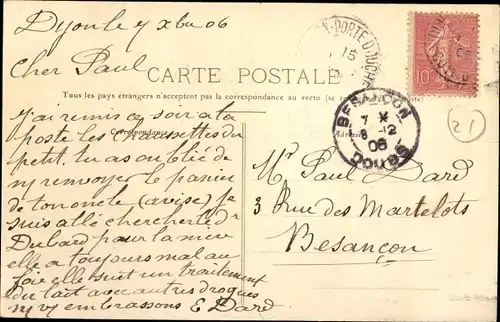 Dijon le 7 Xbre 06
Cher Paul
CARTE POSTALE
Tous les pays étrangers n'acceptent pas la correspondance au recto (se
J'ai remis ce soir à la
poste les chaussettes du
Correspondance
petit, tu as oublié de
m'renvoyer le panier
de ton oncle (avise) je
suis allé chercher le Dr
Dubard pour la
elle a toujours mal au
foie elle suit un traitement
du lait avec autres drogues
n/ v/ embrassons E Dard
PORTE D'OUCHE
15
10
BESANÇON
7 X
8-12
06
DOUBS
21
Mr Paul Dard
3 Rue des Martelots
Besançon